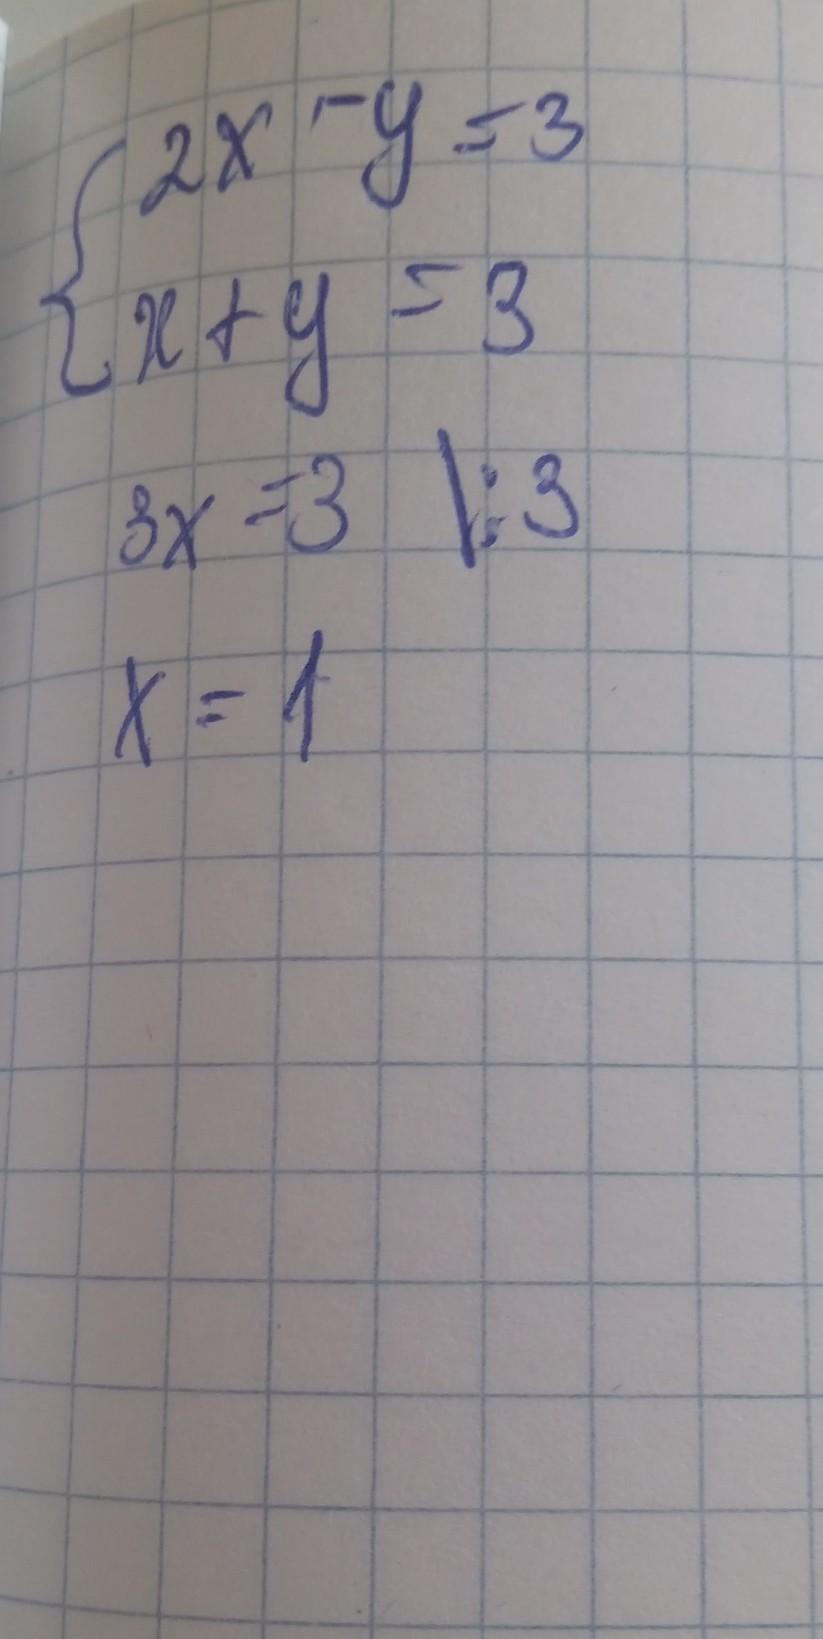 2x - y = 3
x + y = 3
3x = 3 |:3
x = 1